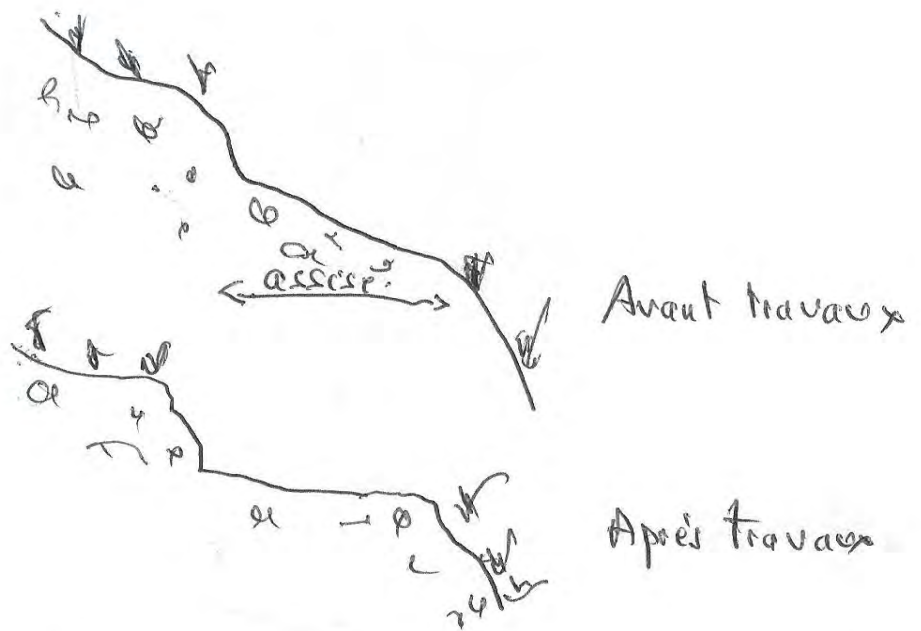 assise
Avant travaux
Après travaux